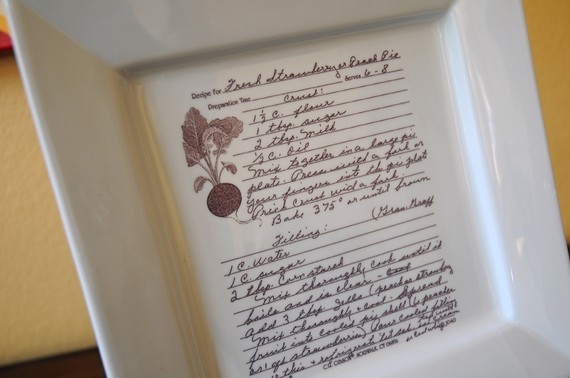 Recipe For Fresh Strawberry or Peach Pie
Preparation Time Serves 6-8
Crust:
1 1/2 C. flour
1 tbsp. sugar
2 tbsp. Milk
1/2 C. Oil
Mix together in a large pie
plate. Press with a fork or
your fingers into the pie plate
Prick Crust with a fork.
Bake 375° or until brown
(Gran Graff
Filling:
1 C. Water
1 C. sugar
2 tbsp. Corn starch
Mix thoroughly cook until it
boils and is clear -
add 3 tbsp. Jello (peach or strawberry
Mix thoroughly & cool. Spread
fruit into cooled pie shell 6 peaches
or 1 qt strawberries. Pour cooled filling
this & refrigerate
or Cool Whip